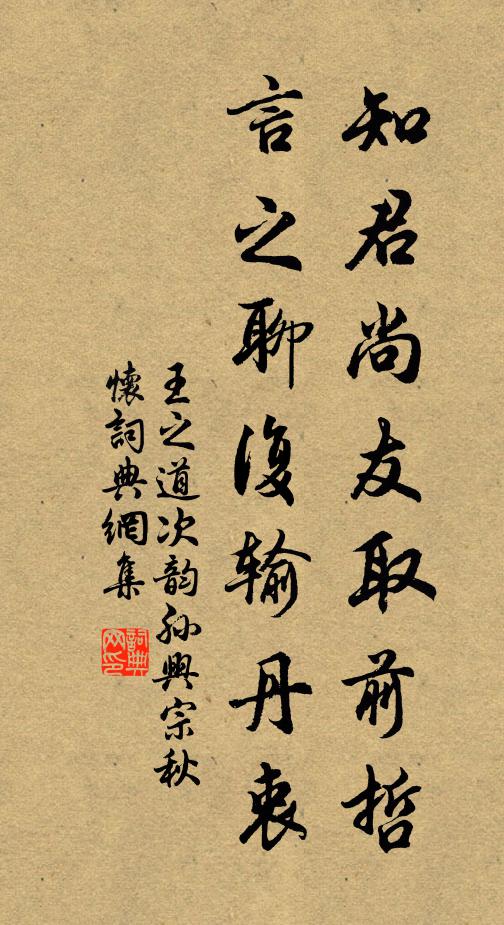 知君尚友取前哲
言之聊復輸丹衷
王之道次韵孙興宗秋
懷詞典網集
詞典网印